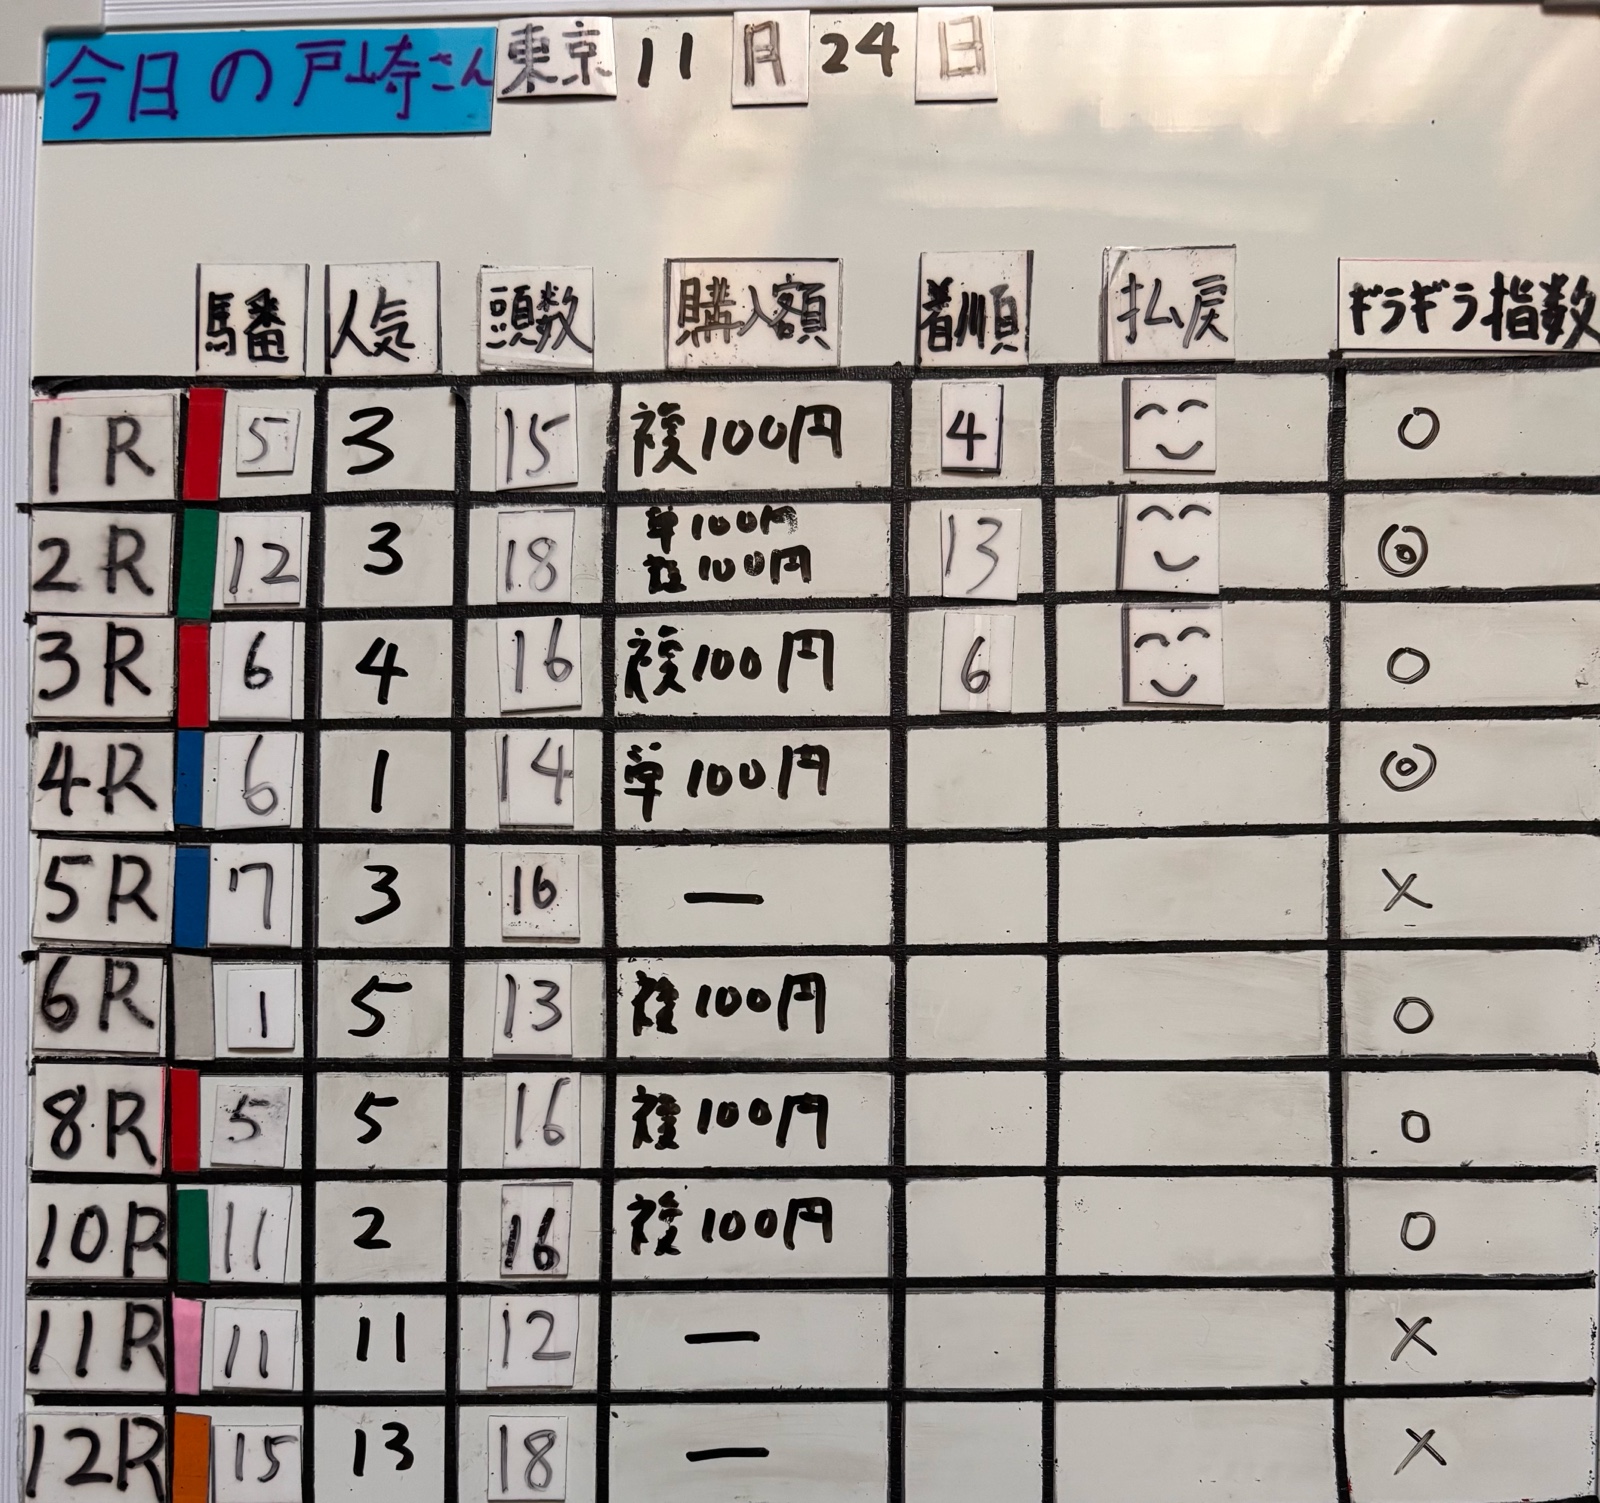 今日の戸崎さん 東京 11月24日
馬番 人気 頭数 購入額 着順 払戻 ギラギラ指数
1R 5 3 15 複100円 4 ○
2R 12 3 18 単100円 13 ◎
複100円
3R 6 4 16 複100円 6 ○
4R 6 1 14 単100円 ◎
5R 7 3 16 — ×
6R 1 5 13 複100円 ○
8R 5 5 16 複100円 ○
10R 11 2 16 複100円 ○
11R 11 11 12 — ×
12R 15 13 18 — ×